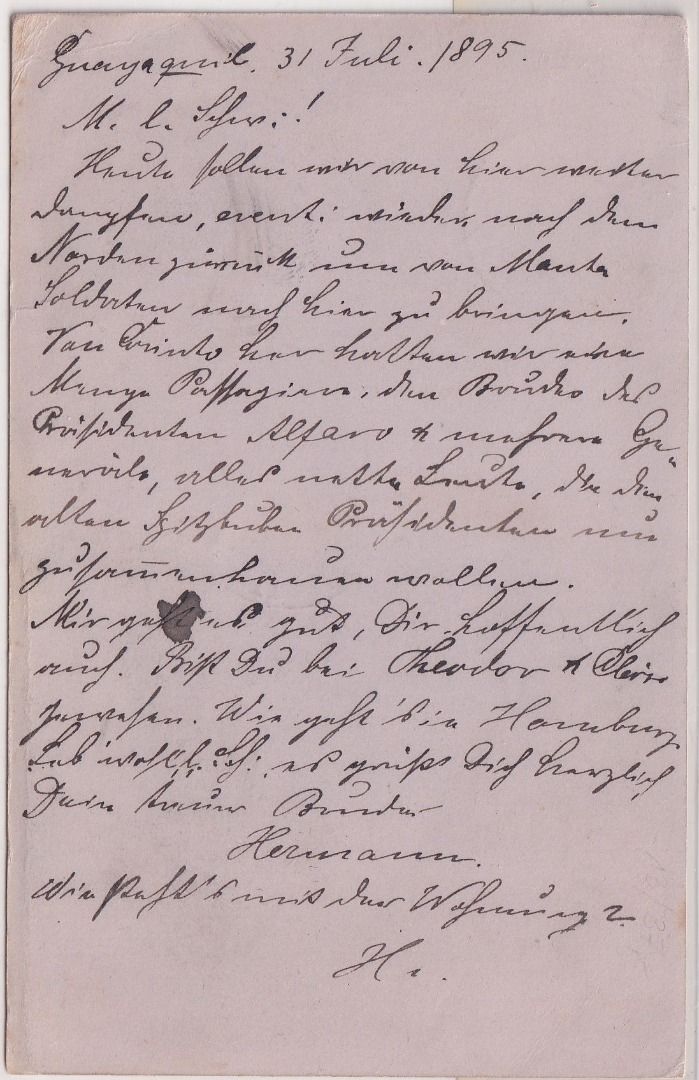 Guayaquil. 31 Juli. 1895.
M. l. Schw.!
Heute sollen wir von hier weiter
dampfen, event: wieder nach dem
Norden zurück um von Manta
Soldaten nach hier zu bringen.
Von Corinto her hatten wir eine
Menge Passagiere, den Bruder des
Präsidenten Alfaro & mehrere Ge-
neräle, alles nette Leute, die den
alten Spitzbuben Präsidenten nun
zusammenhauen wollen.
Mir geht es gut, Dir hoffentlich
auch. Bist Du bei Theodor &
gewesen. Wie geht's in Hamburg
Leb' wohl l. Sch: es grüßt Dich herzlich
Dein treuer Bruder
Hermann.
Wie steht's mit der Wohnung?
H.